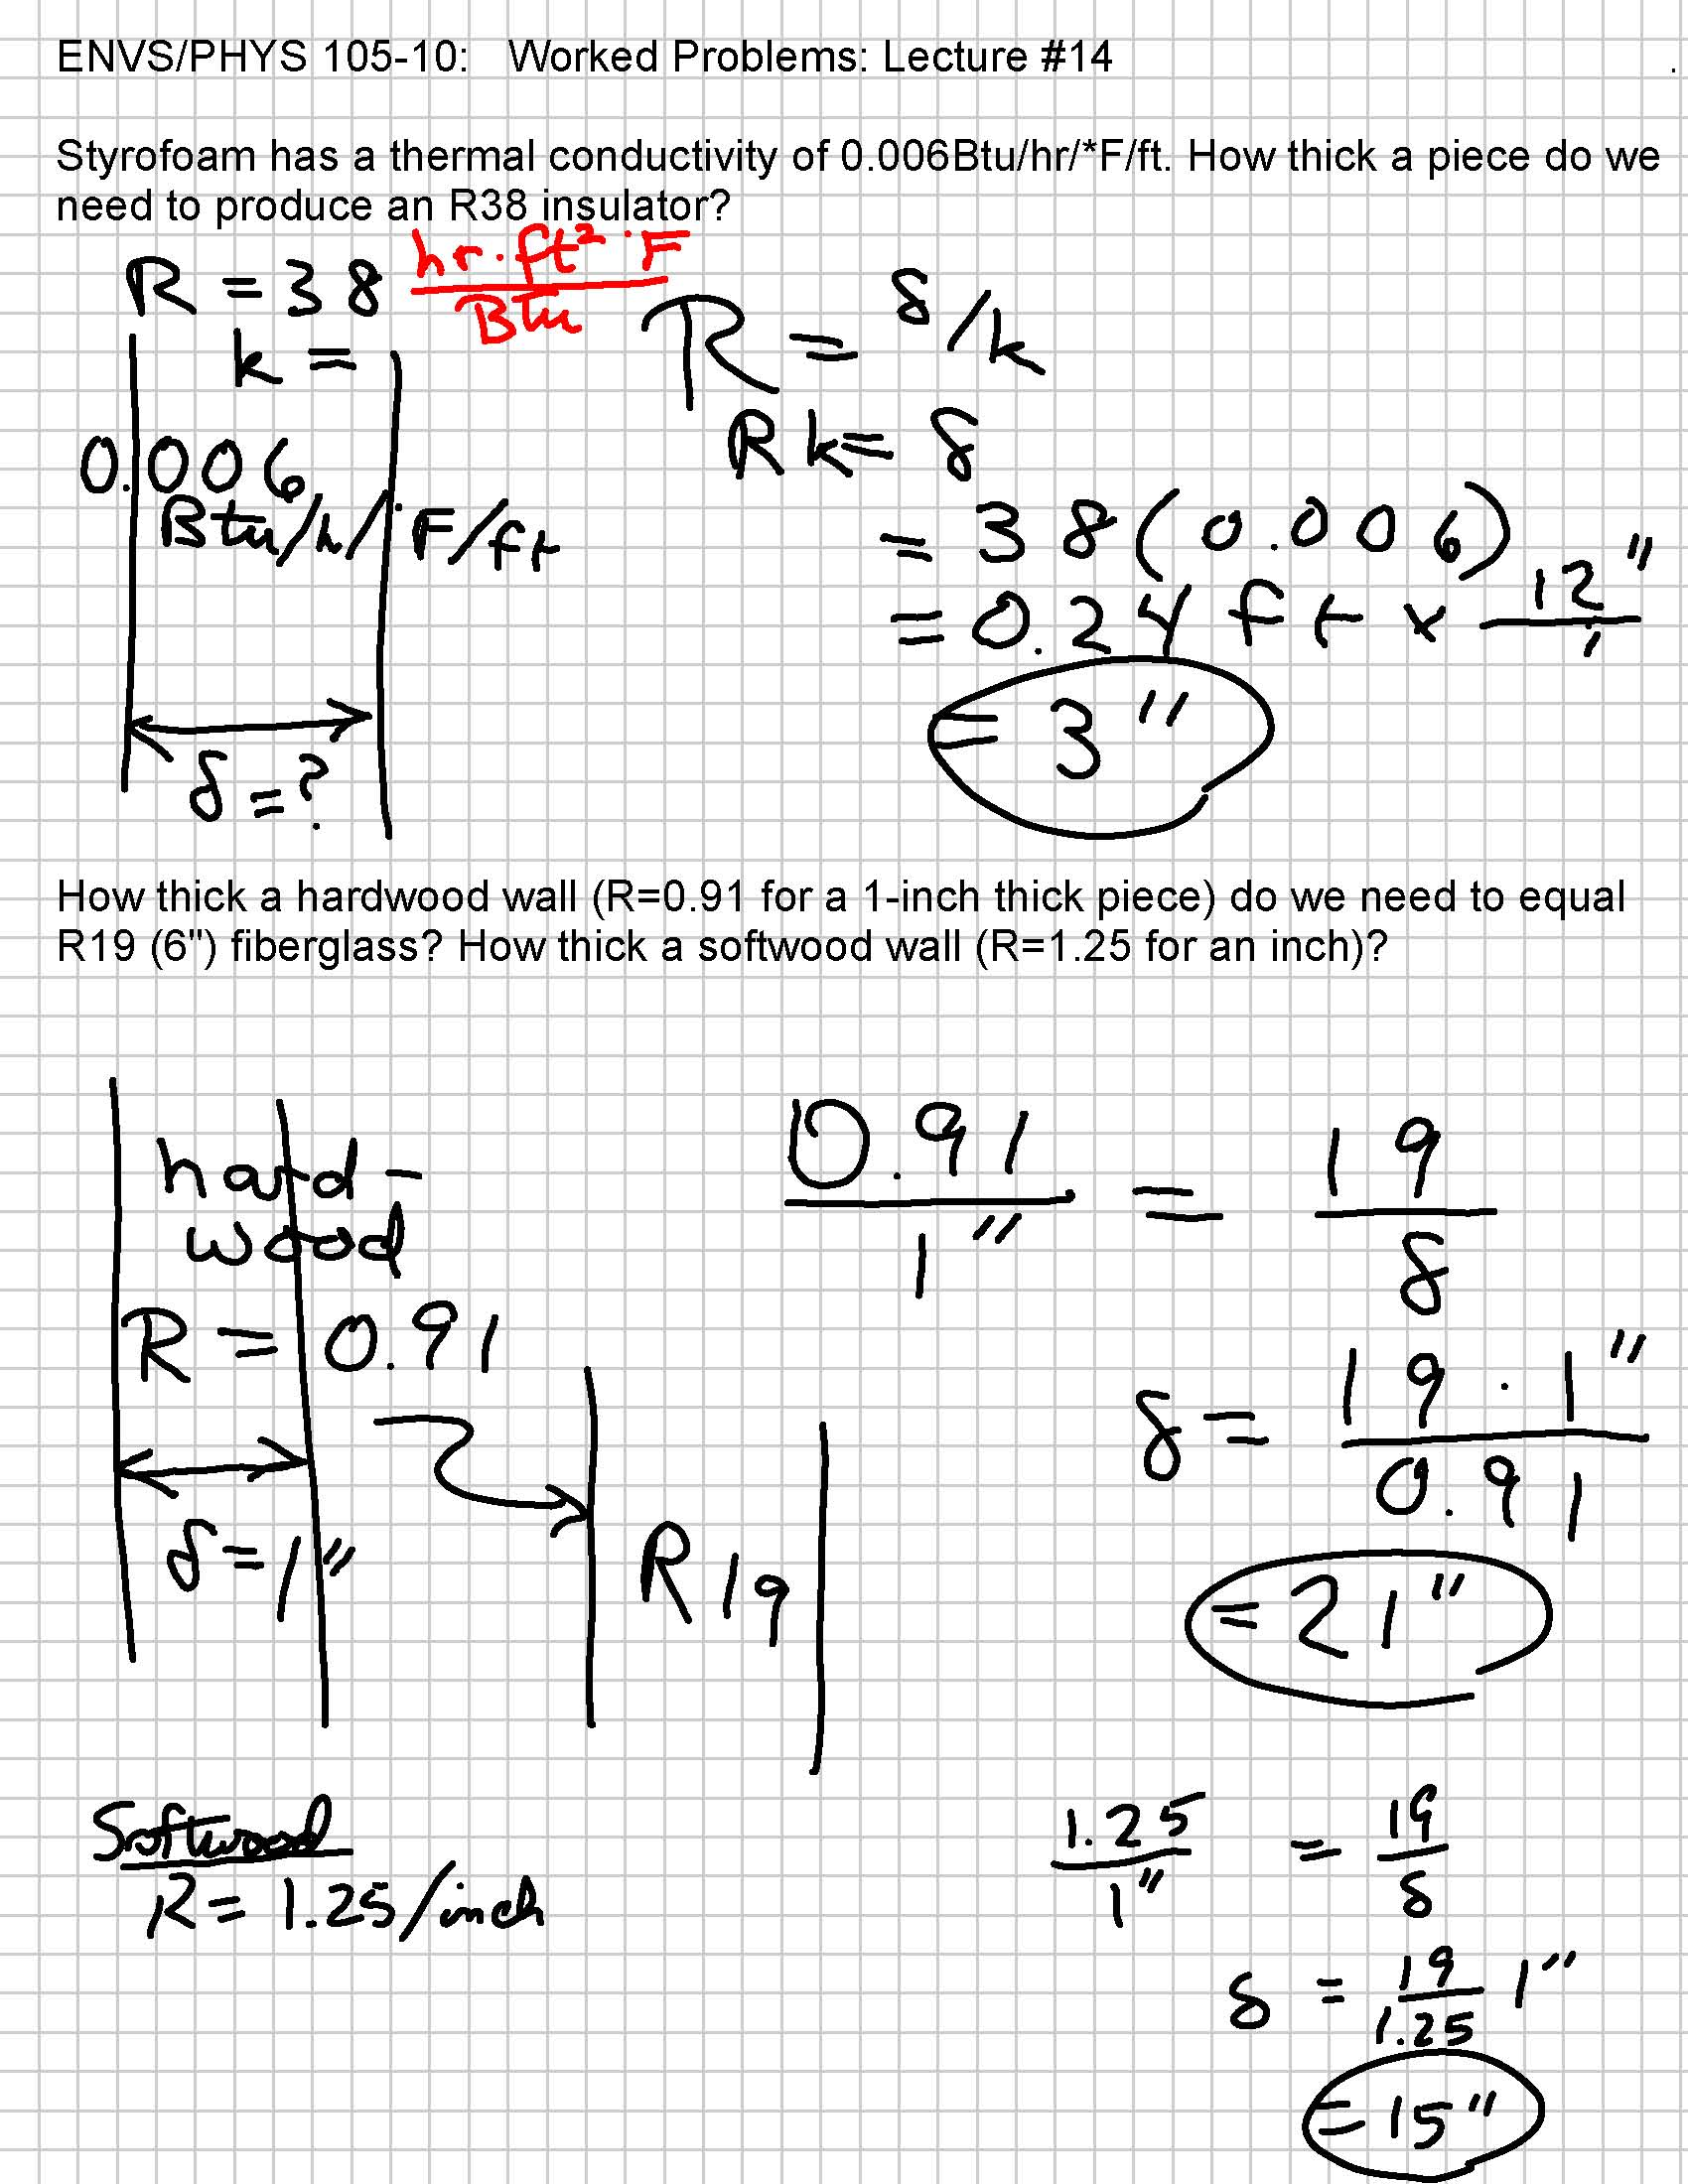 ENVS/PHYS 105-10: Worked Problems: Lecture #14
Styrofoam has a thermal conductivity of 0.006Btu/hr/*F/ft. How thick a piece do we
need to produce an R38 insulator?
R = 38 hr·ft²·F / Btu
k =
0.006
Btu/h/°F/ft
δ = ?
R = δ/k
Rk = δ
= 38(0.006)
= 0.24 ft × 12" / '
= 3"
How thick a hardwood wall (R=0.91 for a 1-inch thick piece) do we need to equal
R19 (6") fiberglass? How thick a softwood wall (R=1.25 for an inch)?
hard-
wood
R = 0.91
δ = 1"
R19
0.91 / 1" = 19 / δ
δ = 19 · 1" / 0.91
= 21"
Softwood
R = 1.25/inch
1.25 / 1" = 19 / δ
δ = 19 / 1.25 1"
= 15"